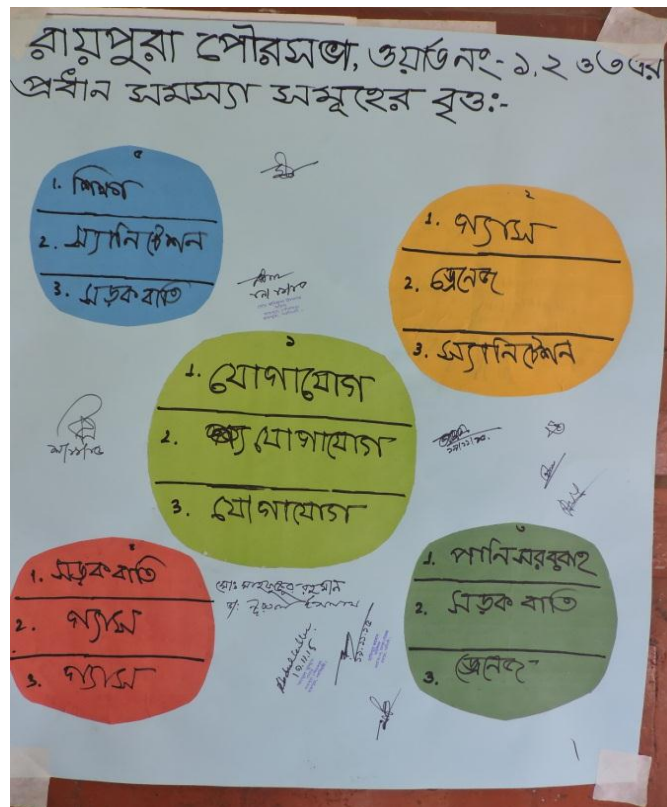 রায়পুরা পৌরসভা, ওয়ার্ড নং:- ১, ২ ও ৩ এর
প্রধান সমস্যা সমূহের বৃত্ত:-
৫
1. শিক্ষা
2. স্যানিটেশন
3. সড়ক বাতি
২
1. গ্যাস
2. ড্রেনেজ
3. স্যানিটেশন
১
1. যোগাযোগ
2. যোগাযোগ
3. যোগাযোগ
1. সড়ক বাতি
2. গ্যাস
3. গ্যাস
1. পানি সরবরাহ
2. সড়ক বাতি
3. ড্রেনেজ